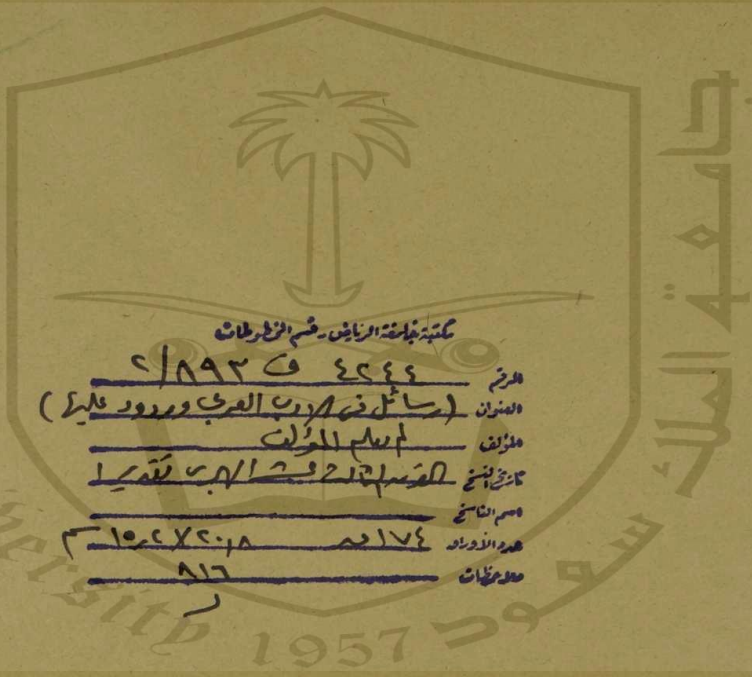 مكتبة جامعة الرياض - قسم المخطوطات
الرقم ٤٢٤٤ ف ٢/٨٩٣
العنوان (رسائل في الادب العربي وردود عليها)
المؤلف لم يعلم المؤلف
تاريخ النسخ القرن الثالث عشر الهجري تقديرا
اسم الناسخ
عدد الأوراق ١٧٤ ٢٠,٨ X ١٥,٢ سم
ملاحظات ٨١٦
ر
جامعة الملك سعود
1957